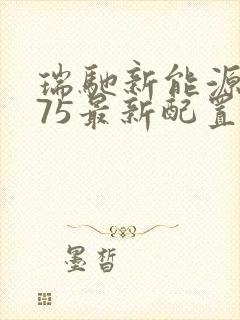 瑞馳新能源
75最新配置
墨皙